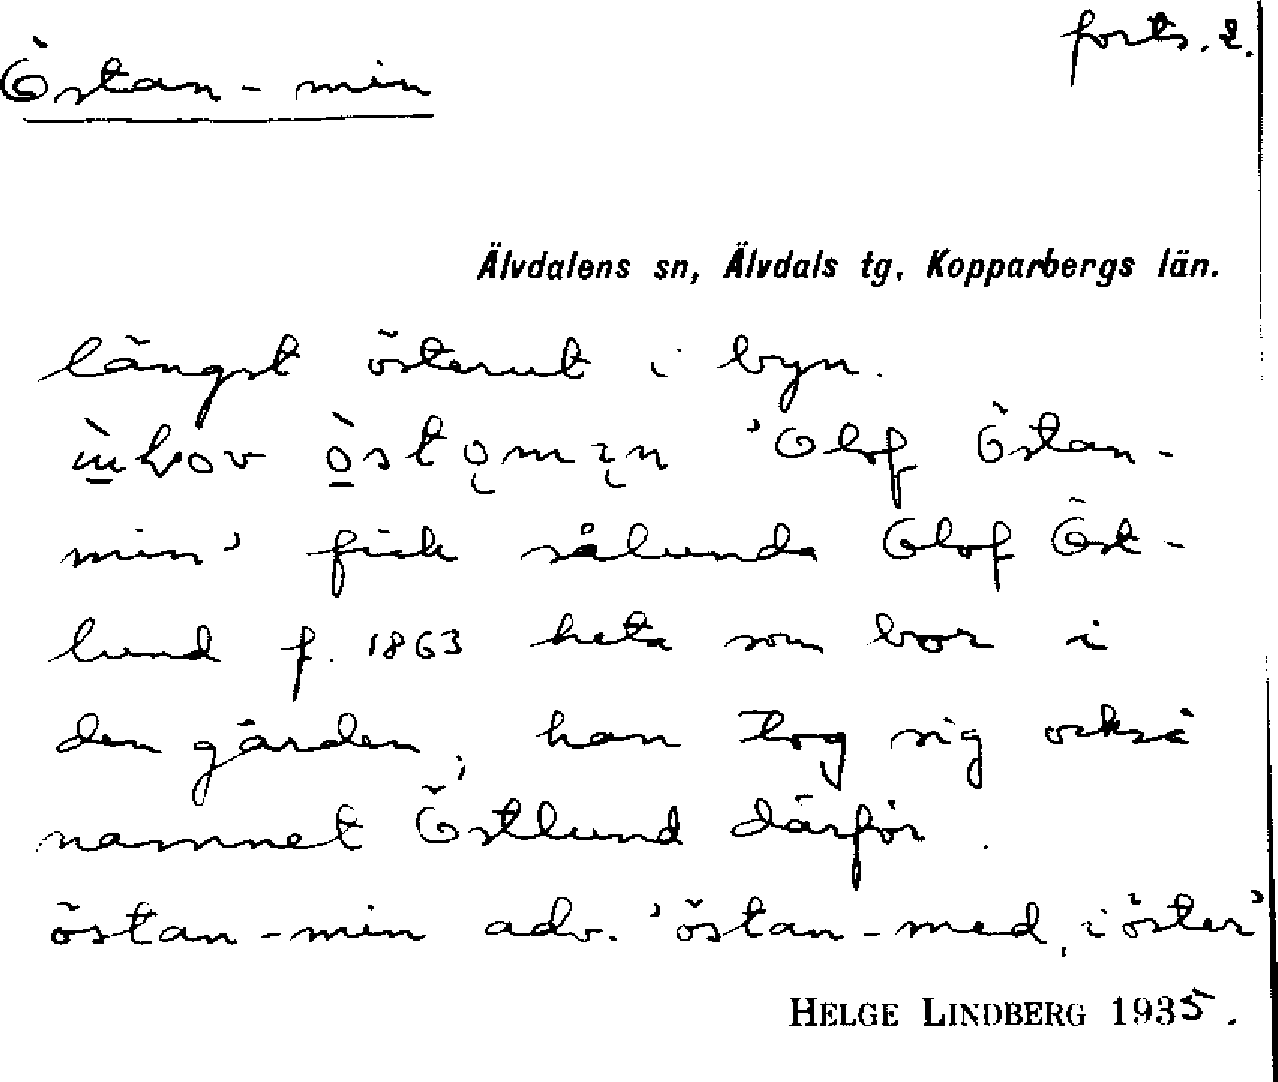 forts. 2.
Östan-min
Älvdalens sn, Älvdals tg, Kopparbergs län.
längst österut i byn.
'Olof Östan-
min' fick sålunda Olof Öst-
lund f. 1863 heta som bor i
den gården, han tog sig också
namnet Östlund därför.
östan-min adv. 'östan-med, i öster'
HELGE LINDBERG 1935.